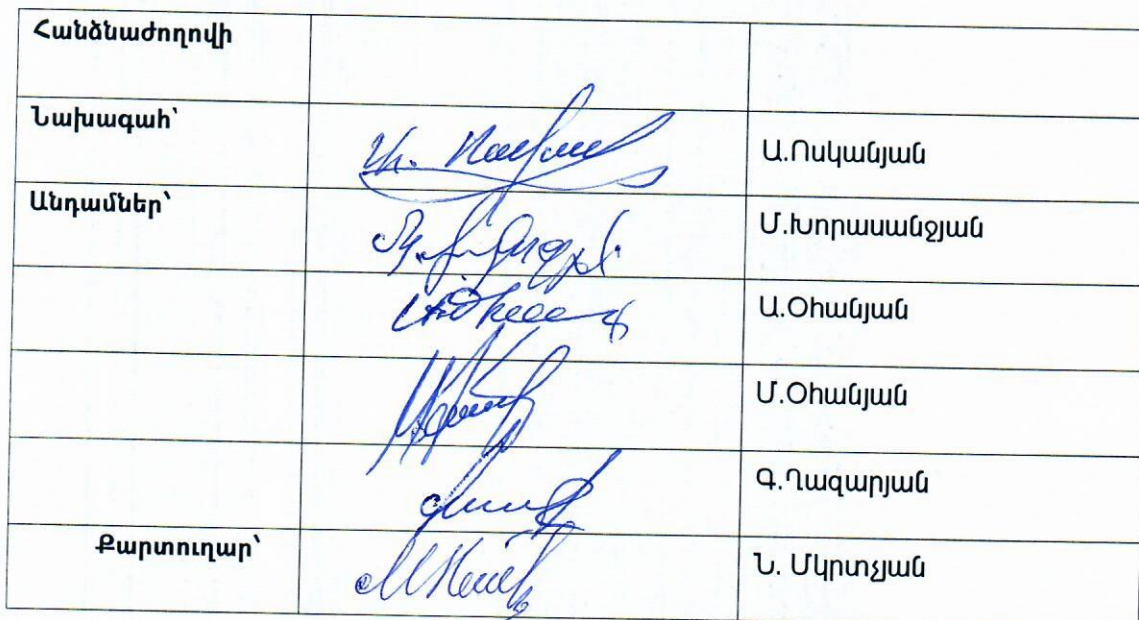 Հանձնաժողովի
Նախագահ՝ Ա.Ոսկանյան
Անդամներ՝ Մ.Խորասանջյան
Ա.Օհանյան
Մ.Օհանյան
Գ.Ղազարյան
Քարտուղար՝ Ն. Մկրտչյան